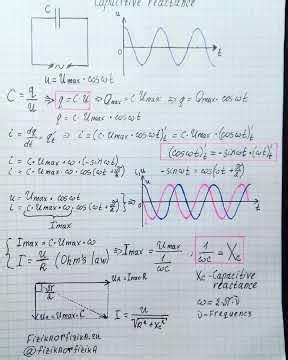 Capacitive reactance
C
u
t
u = Umax · cosωt
C = q/U ⇒ q = C·U ⇒ Qmax = C·Umax ⇒ q = Qmax·cosωt
q = C·Umax·cosωt
i = dq/dt = q't ⇒ i = (C·Umax·cosωt)'t = C·Umax·(cosωt)'t
(cosωt)'t = -sinωt·(ωt)'t
i = C·Umax·ω·(-sinωt)
i = C·Umax·ω·cos(ωt + π/2)
-sinωt = cos(ωt + π/2)
i,u
u
i
t
u = Umax·cosωt
i = C·Umax·ω·cos(ωt + π/2)
Imax
Imax = C·Umax·ω
I = U/R (Ohm's law)
⇒ Imax = Umax / (1/ωC)
1/ωC = Xc
Xc - Capacitive reactance
ω = 2π·ν
ν - Frequency
I = U/√(R² + Xc²)
@fizikaotfizika